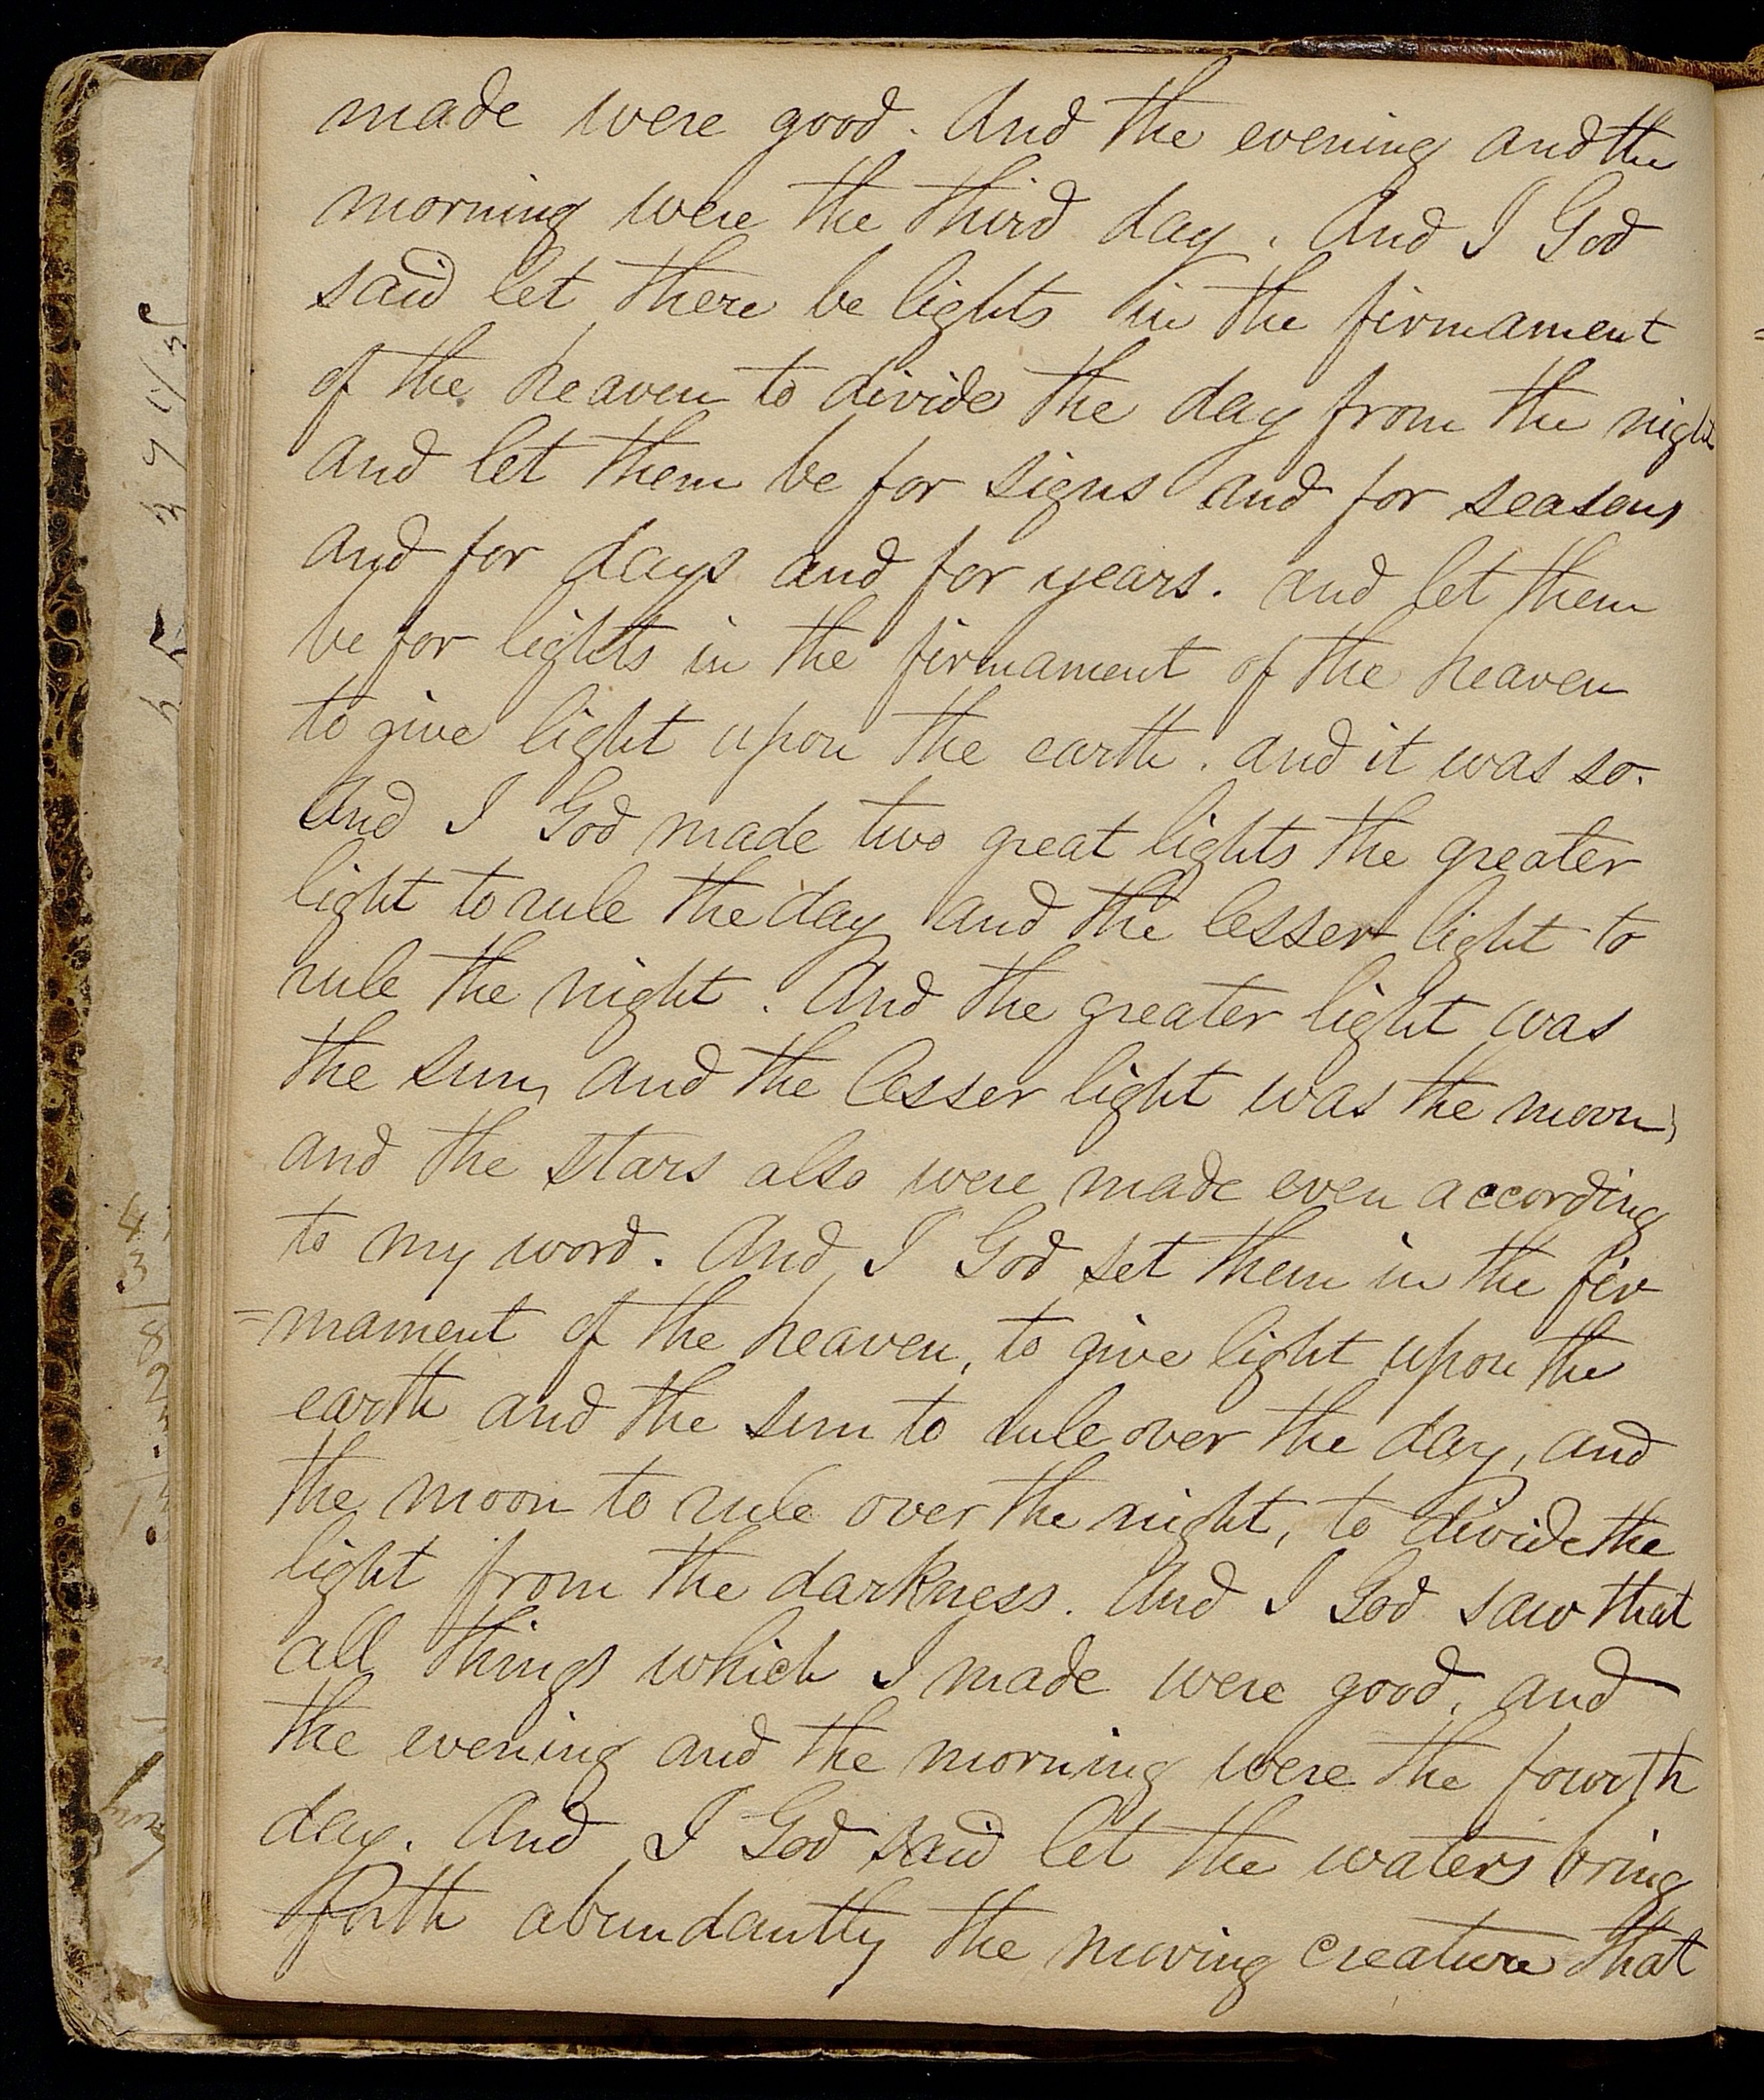 made were good. And the evening and the
morning were the third day. And I God
said let there be lights in the firmament
of the heaven to divide the day from the night
and let them be for signs and for seasons
and for days and for years. and let them
be for lights in the firmament of the heaven
to give light upon the earth. and it was so.
And I God made two great lights the greater
light to rule the day and the lesser light to
rule the night. And the greater light was
the sun, and the lesser light was the moon,
and the stars also were made even according
to my word. And I God set them in the fir
=mament of the heaven, to give light upon the
earth and the sun to rule over the day, and
the moon to rule over the night, to divide the
light from the darkness. And I God saw that
all things which I made were good, and
the evening and the morning were the fourth
day. And I God said let the waters bring
forth abundantly the moving creature that